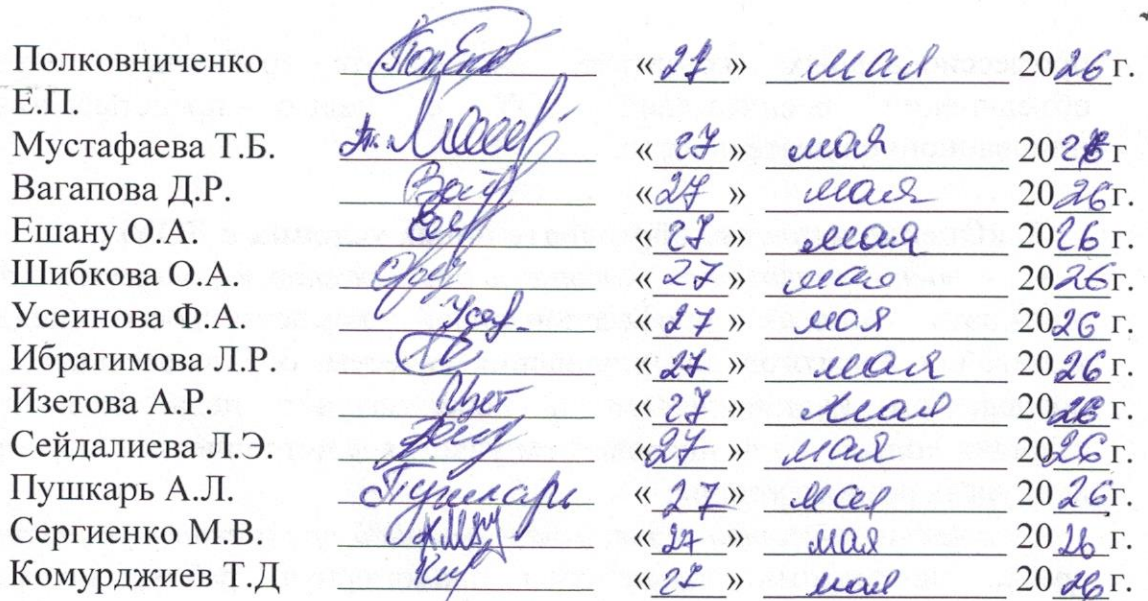 Полковниченко «27» мая 2026г.
Е.П.
Мустафаева Т.Б. «27» мая 2026г
Вагапова Д.Р. «27» мая 2026г.
Ешану О.А. «27» мая 2026г.
Шибкова О.А. «27» мая 2026г.
Усеинова Ф.А. Усеф «27» мая 2026г.
Ибрагимова Л.Р. «27» мая 2026г.
Изетова А.Р. Изет «27» мая 2026г.
Сейдалиева Л.Э. «27» мая 2026г.
Пушкарь А.Л. Пушкарь «27» мая 2026г.
Сергиенко М.В. «27» мая 2026г.
Комурджиев Т.Д «27» мая 2026г.